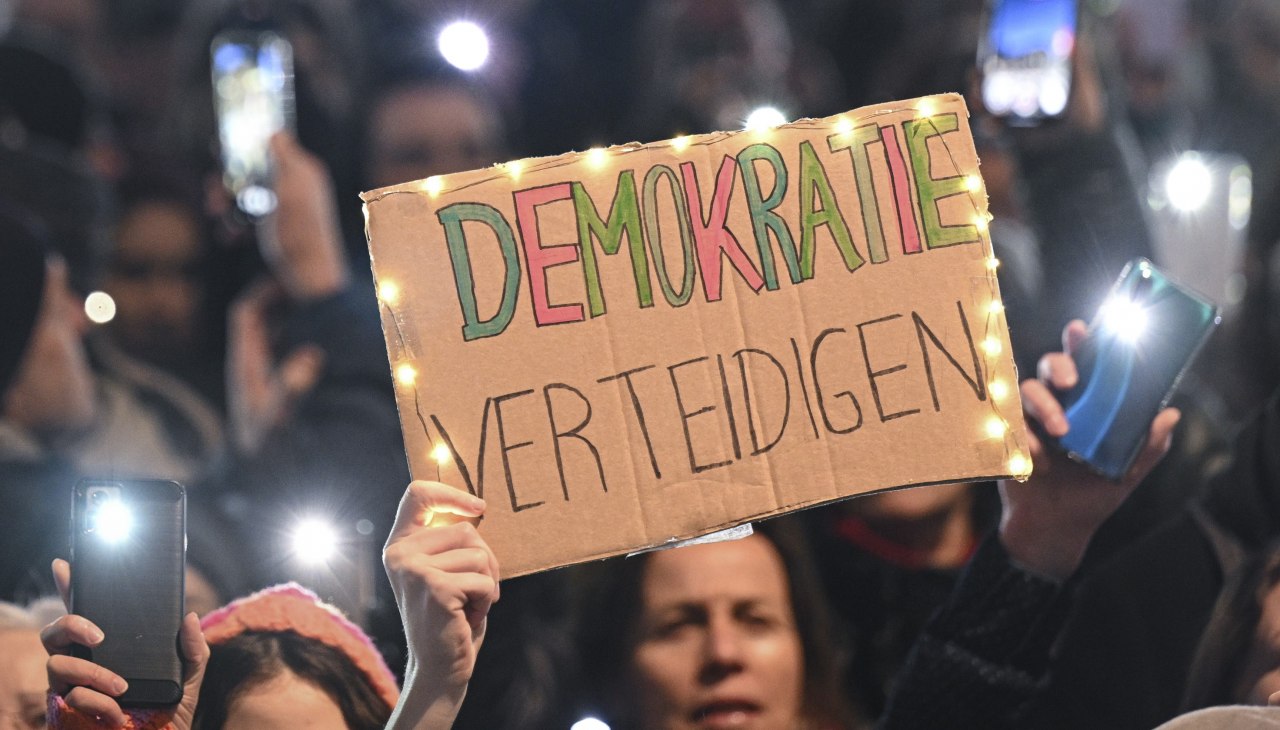 DEMOKRATIE
VERTEIDIGEN